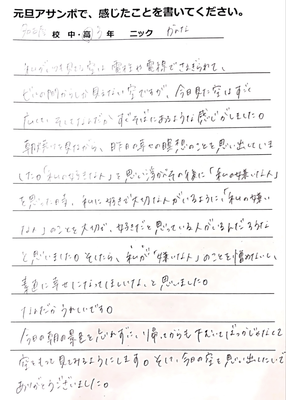 元旦アサンポで、感じたことを書いてください。
校 中・高 年 ニック
私がいつも見る空は電柱や電線でさえぎられて、
どこか明るくしか見えない空だが、今日見た空はすごく
広くて、そしてなんだかすぐそばにあるような感じがしました。
朝焼けを見ながら、昨日の幸せの瞑想のことを思い出していま
した。「私の好きな人」を思い浮かべその後に「私の嫌いな人」
を思った時、私に好きで大切な人がいるように、「私の嫌い
な人」のことを大切だ、好きだと思っている人がいるんだろうな
と思いました。そしたら、私が"嫌いな人"のことを憎めないし、
素直に幸せになってほしいな、と思いました。
なんだかうれしいです。
今日の朝の景色を忘れずに、帰ってからも下むいてばっかじゃなくて
空をもっと見てみるようにします。そして、今日の空を思い出したいです。
ありがとうございました。